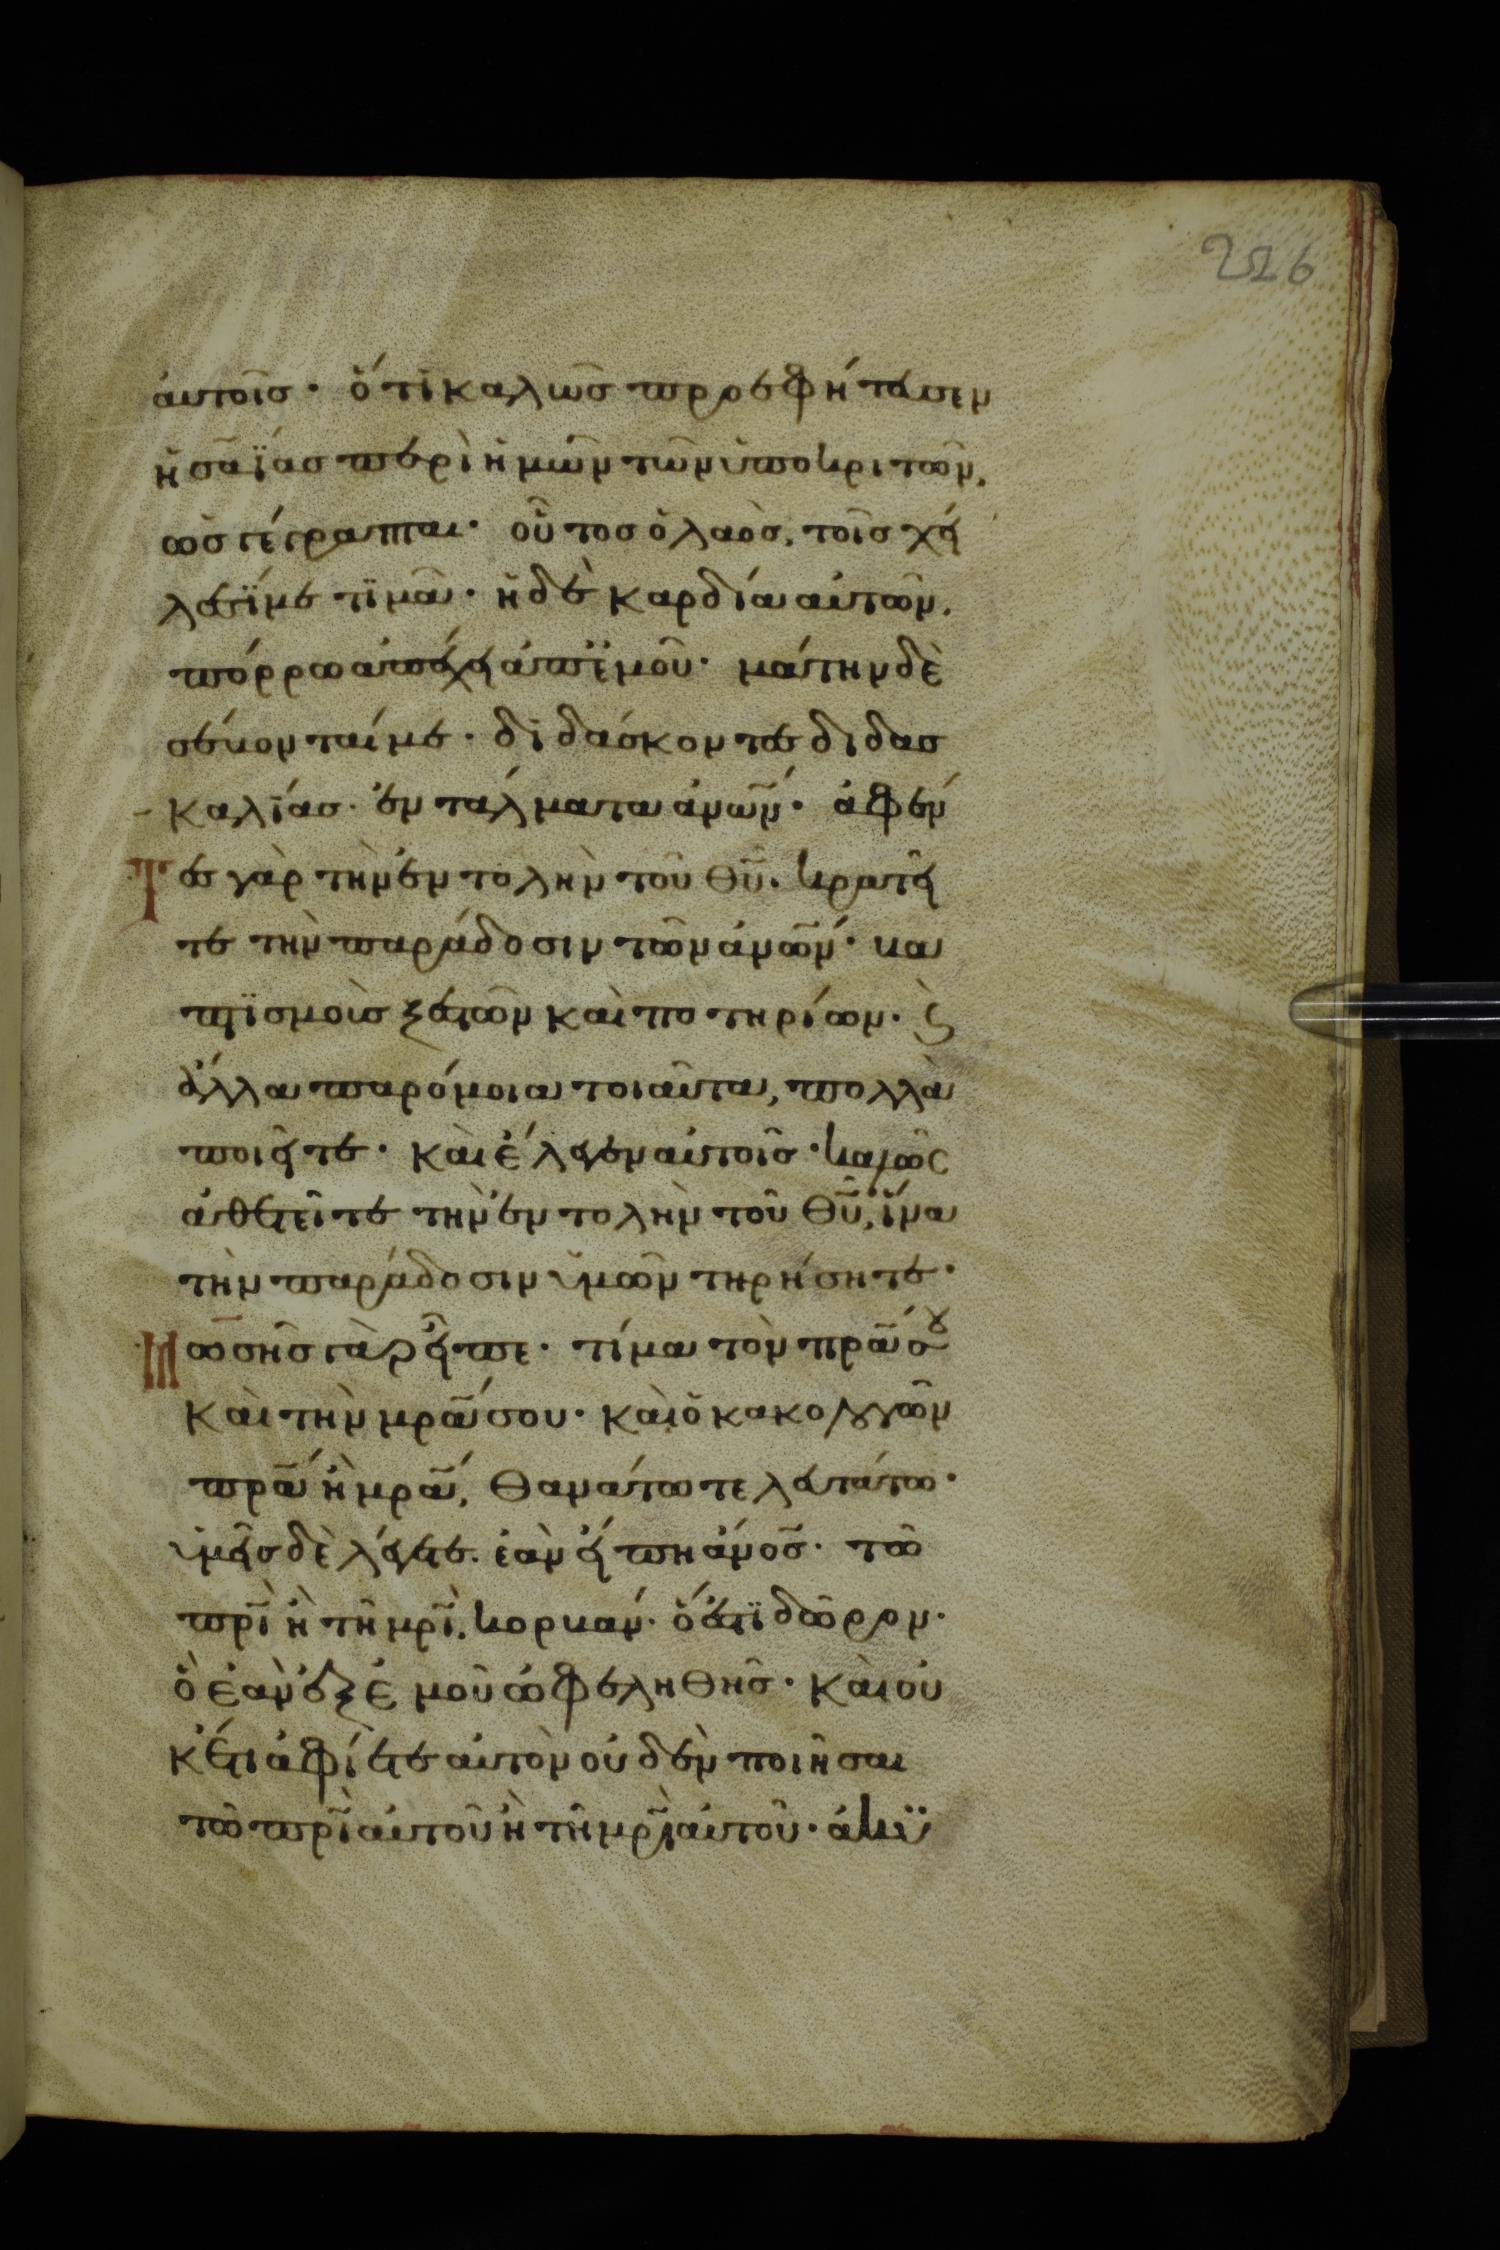 226
αὐτοῖσ· ὅτι καλῶσ προεφήτευσεν
ἡσαΐασ περὶ ἡμῶν τῶν ὑποκριτῶν,
ὡσ γέγραπται· οὗτοσ ὁ λαὸσ, τοῖσ χεί
λεσΐ με τϊμᾶ· ἡ δὲ καρδία αὐτῶν,
πόρρω ἀπέχει ἀπ' ἐμοῦ· μάτην δὲ
σέβονταί με· διδάσκοντεσ διδασ
καλίασ· ἐντάλματα ἀνω̅ν· ἀφέν
τεσ γὰρ τὴν ἐντολὴν τοῦ θυ̅· κρατεῖ
τε τὴν παράδοσιν τῶν ἀνω̅ν· βα
πτϊσμοὺσ ξεστῶν καὶ ποτηρίων· ϗ
ἄλλα παρόμοια τοιαῦτα, πολλὰ
ποιεῖτε· καὶ ἔλεγεν αὐτοῖσ· καλῶσ
ἀθετεῖτε τὴν ἐντολὴν τοῦ θυ̅, ἵνα
τὴν παράδοσιν ὑμῶν τηρήσητε·
Μωσῆσ γὰρ εἶπε· τίμα τὸν πρα̅ σου
καὶ τὴν μρα̅ σου· καὶ ὁ κακολογῶν
πρα̅ ἢ μρα̅, θανάτω τελευτάτω·
ὑμεῖσ δὲ λέγετε· ἐὰν εἴπη ἀνοσ̅· τῶ
πρι̅ ἢ τῆ μρι̅· κορβᾶν· ὅ ἐστϊ δῶρον·
ὃ ἐὰν ἐξ ἐμοῦ ὠφεληθῆσ· καὶ οὐ
κέτι ἀφίετε αὐτὸν οὐδὲν ποιῆσαι
τῶ πρι̅ αὐτοῦ ἢ τῆ μρι̅ αὐτοῦ· ἀκυ